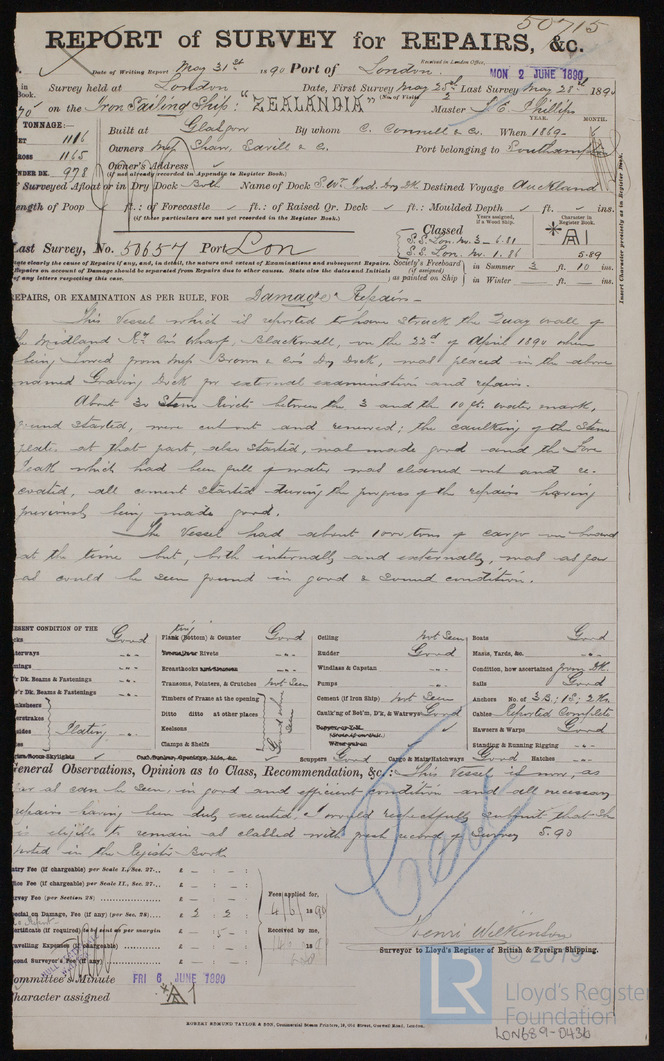 50715
REPORT of SURVEY for REPAIRS, &c.
Received in London Office,
Date of Writing Report May 31st 1890 Port of London.
MON 2 JUNE 1890
Survey held at London Date, First Survey May 25th Last Survey May 28th 1890
on the Iron Sailing Ship: "ZEALANDIA" Master Phillips
TONNAGE:—
YEAR. MONTH.
1116 Built at Glasgow By whom C. Connell & Co. When 1869- 6
ROSS 1165 Owners Mess Shaw, Savill & C. Port belonging to Southampton
NDER DK. 978 Owner's Address
(if not already recorded in Appendix to Register Book.)
Surveyed Afloat or in Dry Dock Both Name of Dock S.W. Ind. Dry Dk. Destined Voyage Auckland
ength of Poop ft.: of Forecastle ft.: of Raised Qr. Deck ft.: Moulded Depth ft. ins.
(if these particulars are not yet recorded in the Register Book.)
Insert Character precisely as in Register Book.
Last Survey, No. 50657 Port Lon
Classed
Years assigned, if a Wood Ship.
Character in Register Book.
S.S. Lon. No. 3 - 6.81
S.S. Lon. No. 1. 86
A1
5.89
Society's Freeboard (if assigned) as painted on Ship
in Summer 3 ft. 10 ins.
in Winter ft. ins.
tate clearly the cause of Repairs if any, and, in detail, the nature and extent of Examinations and subsequent Repairs.
Repairs on account of Damage should be separated from Repairs due to other causes. State also the dates and Initials
of any letters respecting this case.
EPAIRS, OR EXAMINATION AS PER RULE, FOR Damage Repairs—
This Vessel which is reported to have struck the Quay wall of
he Midland Ry. Co's Wharf, Blackwall, on the 22nd of April 1890 when
being towed from Mess Brown & Co's Dry Dock, was placed in the above
named Graving Dock for external examination and repairs.
About 30 Stem Rivets between the 3 and the 10 ft. water mark,
found started, were cut out and renewed; the caulking of the Stem
plate. at that part, also started, was made good and the Fore
Peak which had been full of water was cleaned out and re-
coated, all cement started during the progress of the repairs having
previously being made good.
The Vessel had about 1000 tons of cargo on board
at the time but, both internally and externally, was as far
as could be seen found in good & sound condition.
RESENT CONDITION OF THE
Good
Plank (Bottom) & Counter Good
Ceiling Not Seen
Boats Good
Rivets
Rudder Good
Masts, Yards, &c.
Breasthooks
Windlass & Capstan
Condition, how ascertained from Dk.
'r Dk. Beams & Fastenings
Transoms, Pointers, & Crutches Not Seen
Pumps
Sails Good
Dk. Beams & Fastenings
Timbers of Frame at the opening
Cement (if Iron Ship) Not Seen
Anchors No. of 3 B.; 1 S.; 2 K.
Ditto ditto at other places
Caulk'ng of Bot'm, D'k, & Waterw'ys Good
Cables Reported Complete
Plating
Keelsons
Hawsers & Warps Good
Clamps & Shelfs
Good where seen
Standing & Running Rigging
Skylights
Scuppers Good Cargo & Main Hatchways Good Hatches
General Observations, Opinion as to Class, Recommendation, &c.: This Vessel is now, as
far as can be seen, in good and efficient condition and all necessary
repairs having been duly executed, I would respectfully submit that she
is eligible to remain as classed with fresh record of Survey 5.90
noted in the Register Book.
ntry Fee (if chargeable) per Scale I., Sec. 27...
ffice Fee (if chargeable) per Scale II., Sec. 27...
urvey Fee (per Section 28)
pecial on Damage, Fee (if any) (per Sec. 28) £ 2 2
ertificate (if required) to be sent as per margin 5
ravelling Expenses (if chargeable)
econd Surveyor's Fee (if any)
Fees applied for,
4/6/1890
Received by me,
Henri Wilkinson
Surveyor to Lloyd's Register of British & Foreign Shipping.
Committee's Minute FRI 6 JUNE 1890
Character assigned A1
© 2019
LR
Lloyd's Register
Foundation
LON689-0436
ROBERT EDMUND TAYLOR & SON, Commercial Steam Printers, 19, Old Street, Goswell Road, London.